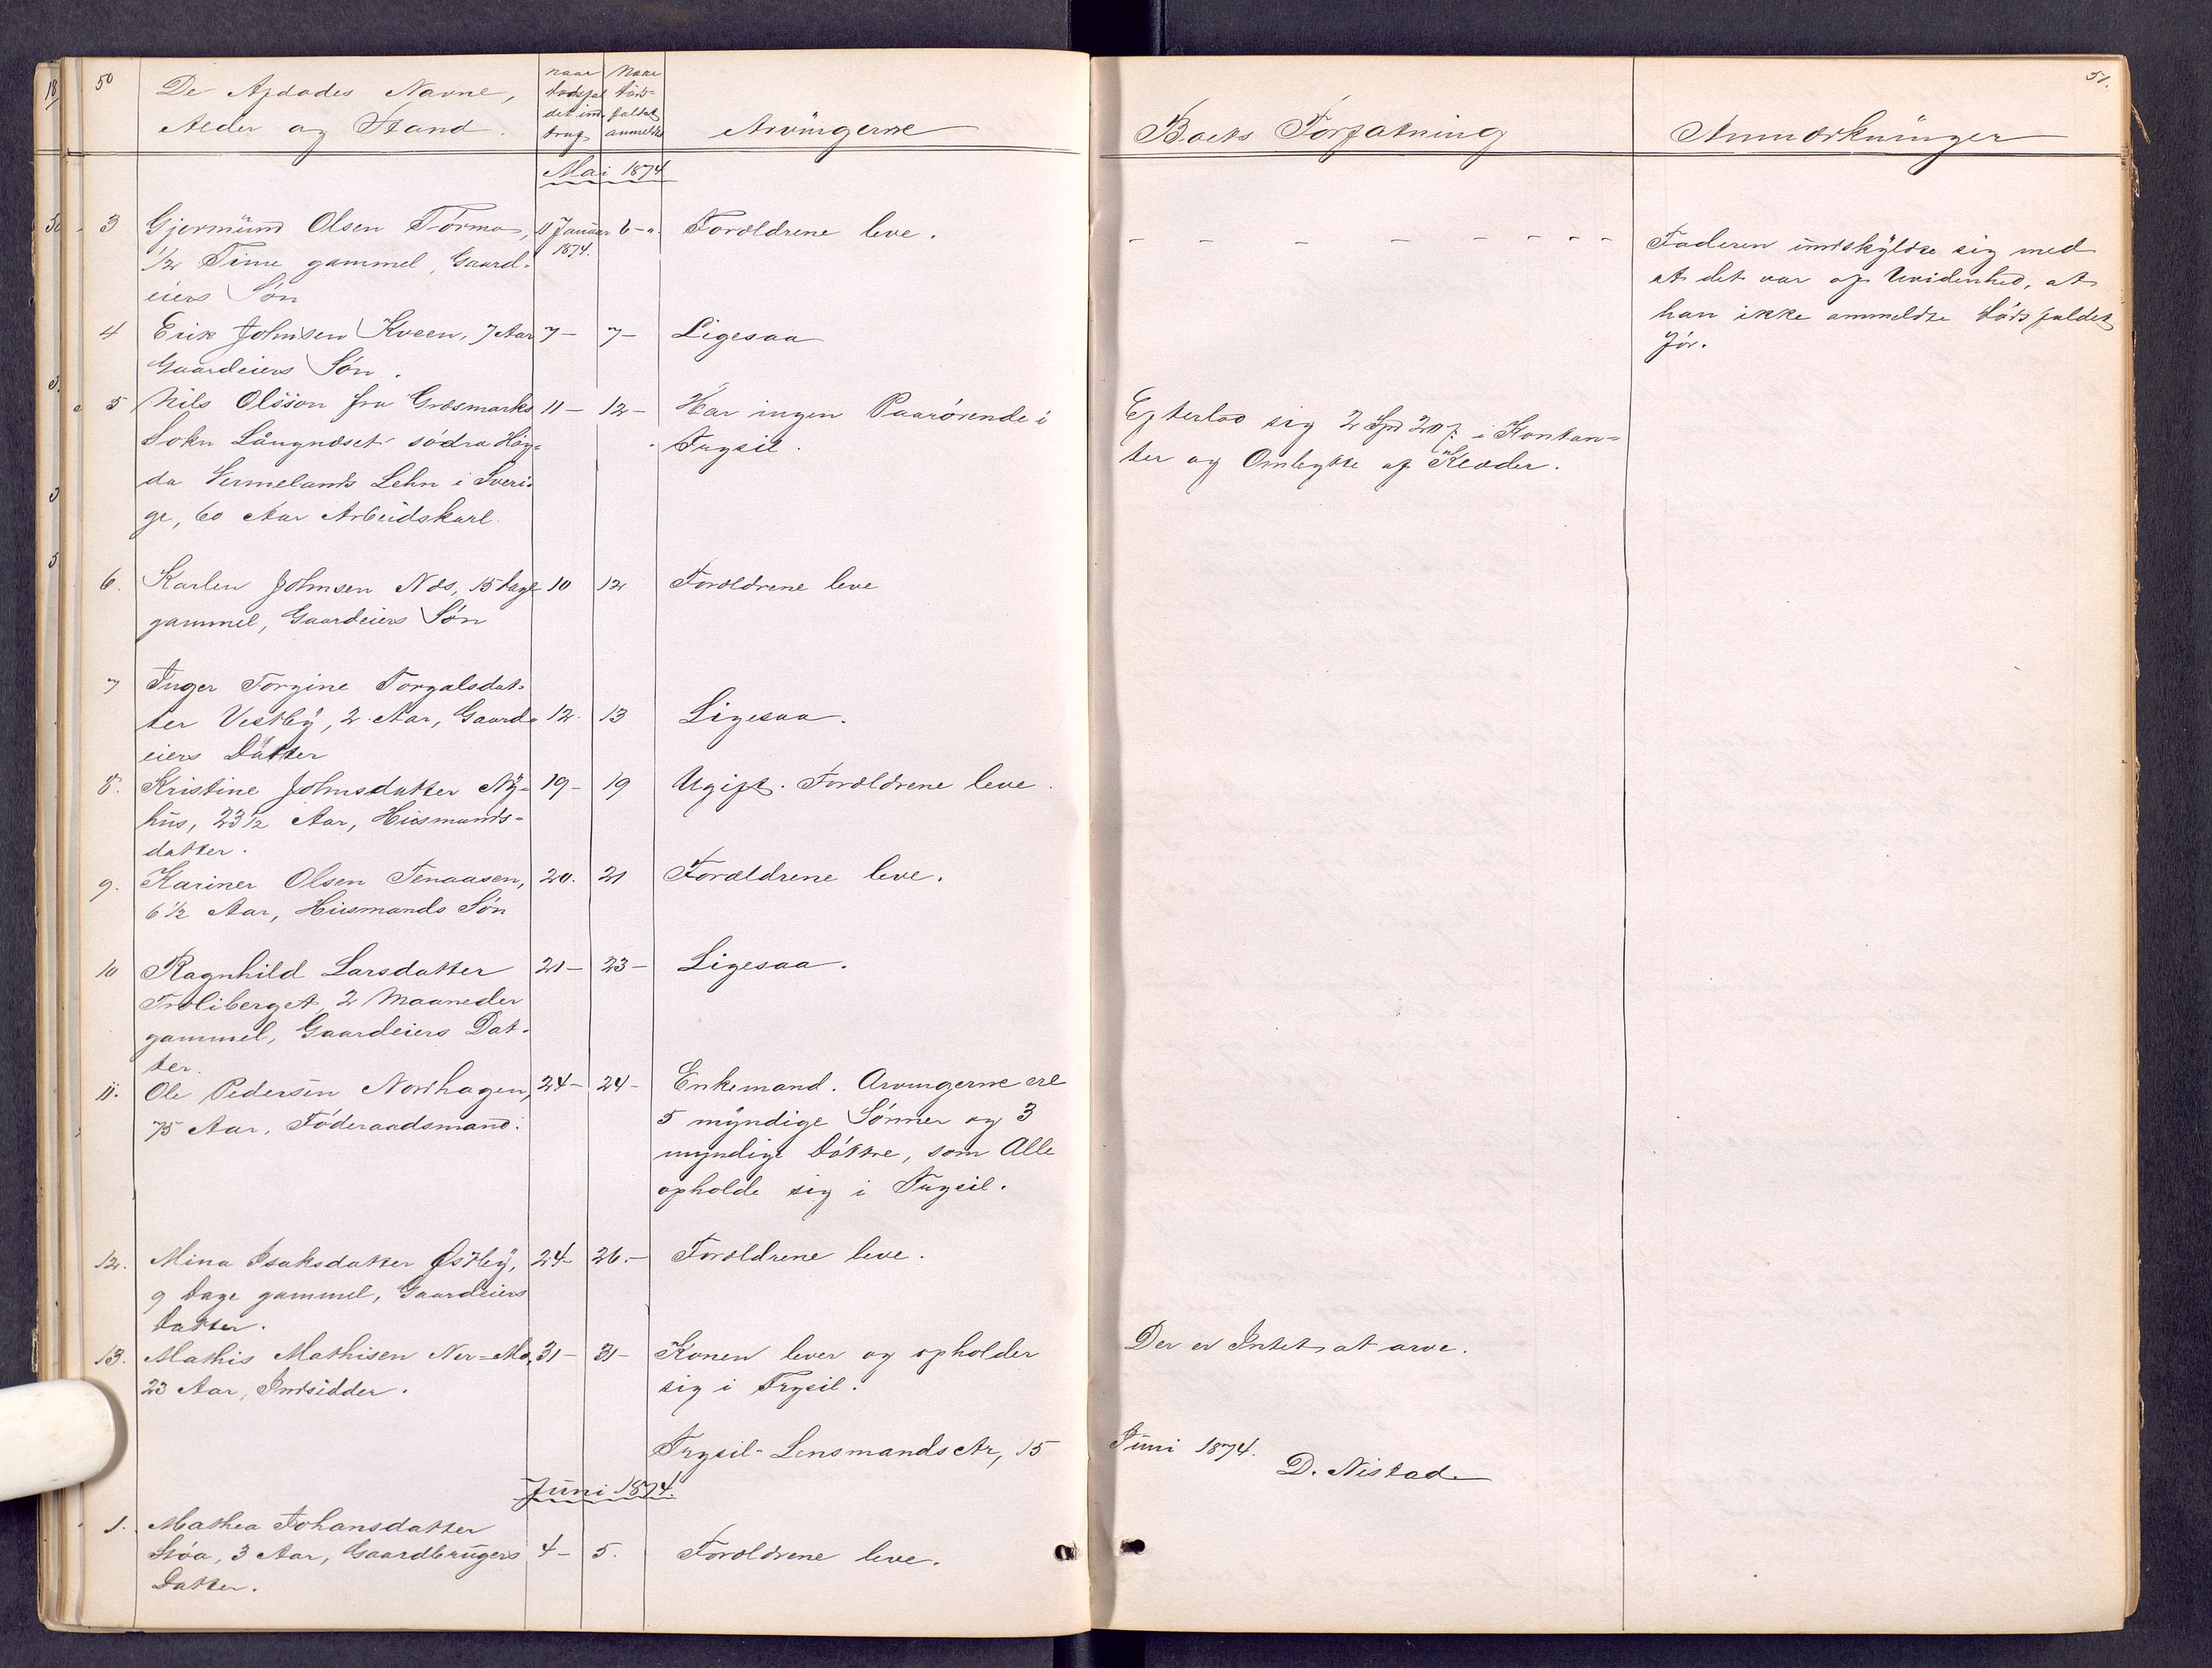 50
De Afdødes Navne,
Alder og Stand.
naar dødsfaldet indtraf
Naar dødsfaldet anmeldt
Arvingerne
Boets Forfatning
Anmærkninger
51.
Mai 1874
3 Gjermund Olsen Tørmo, 11 Januar 6 - Forældrene leve. - - - - - - - -
½ Time gammel, Gaard- 1874.
eiers Søn
Faderen undskyldte sig med
at det var af Uvidenhed, at
han ikke anmeldte dødsfaldet
før.
4 Erik Johnsen Kveen, 7 Aar 7 - 7 - Ligesaa
Gaardeiers Søn.
5 Nils Olsson fra Græsmarks 11 - 12 - Har ingen Paarørende i
Sokn Långnæset södra Høg- Trysil.
da Vermelands Lehn i Sveri-
ge, 60 Aar Arbeidskarl
Efterlod sig 2 Spd 20 s. i Kontan-
ter og Ombytte af Klæder.
6. Karlen Johnsen Næs, 15 dage 10 12 Forældrene leve
gammel, Gaardeiers Søn
7 Inger Torgine Torgalsdat-
ter Vestby, 2 Aar, Gaard- 12. 13 Ligesaa.
eiers Datter
8. Kristine Johnsdatter Ny- 19 - 19 Ugift. Forældrene leve.
hus, 23½ Aar, Husmands-
datter.
9. Kariner Olsen Tenaasen, 20. 21 Forældrene leve.
6½ Aar, Husmands Søn
10 Ragnhild Larsdatter 21 - 23 - Ligesaa.
Troliberget, 2 Maaneder
gammel, Gaardeiers Dat-
ter.
11. Ole Pedersen Nordhagen, 24 - 24 - Enkemand. Arvingerne ere
75 Aar, Föderaadsmand. 5 myndige Sønner og 3
myndige Døttre, som Alle
opholde sig i Trysil.
12. Mina Isaksdatter Østby, 24 - 26. - Forældrene leve.
9 Dage gammel, Gaardeiers
Datter.
13. Mathis Mathisen Ner=Mo, 31 - 31 - Konen lever og opholder Der er Intet at arve.
23 Aar, Indsidder. sig i Trysil.
Trysil-Lensmands Ar, 15 Juni 1874.
D. Nistad
Juni 1874.
1. Mathea Johansdatter
Støa, 3 Aar, Gaardbrugers 4 - 5. Forældrene leve.
Datter.